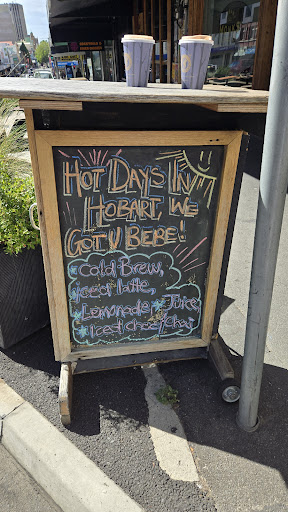 Hot Days In
Hobart, We
Got U Bebe!
Cold Brew,
Iced latte,
Lemonade, Juice,
Iced choc, Chai